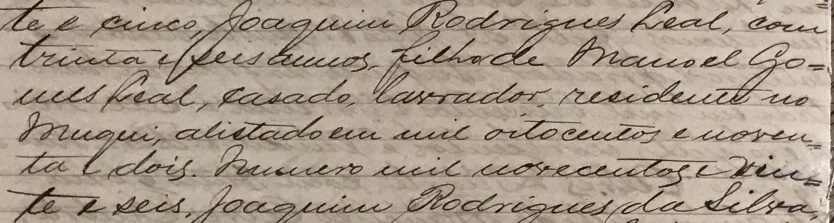 te e cinco, Joaquim Rodrigues Leal, com
trinta e seis annos, filho de Manoel Go=
mes Leal, casado, lavrador, residente no
Muqui, alistado em mil oitocentos e noven=
ta e dois. Numero mil novecentos e vin=
te e seis, Joaquim Rodrigues da Silva,